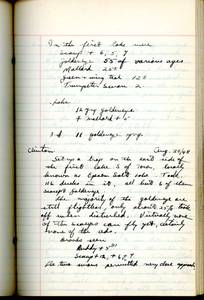 In the first lake were
Scaup + 6, 5, 7
Goldeneye 55 of various ages
Mallard 25±
Green-wing teal 12±
Trumpeter Swan 2
lake
12 yg goldeneye
♀ mallard + 5
3d 11 goldeneye yg.
Clinton Aug. 29/48
Set up a trap on the east side of
the first lake S of town, locally
known as Epsom Salt lake. Took
116 ducks in it, all but 5 of them
except Goldeneye
The majority of the goldeneye are
still flightless, only about 25% took
off when disturbed. Virtually none
of the scaups can fly yet, certainly
none of the ads.
Broods seen
Ruddy + 5
Scaup + 12, + 6, 7
The two swans permitted very close approach